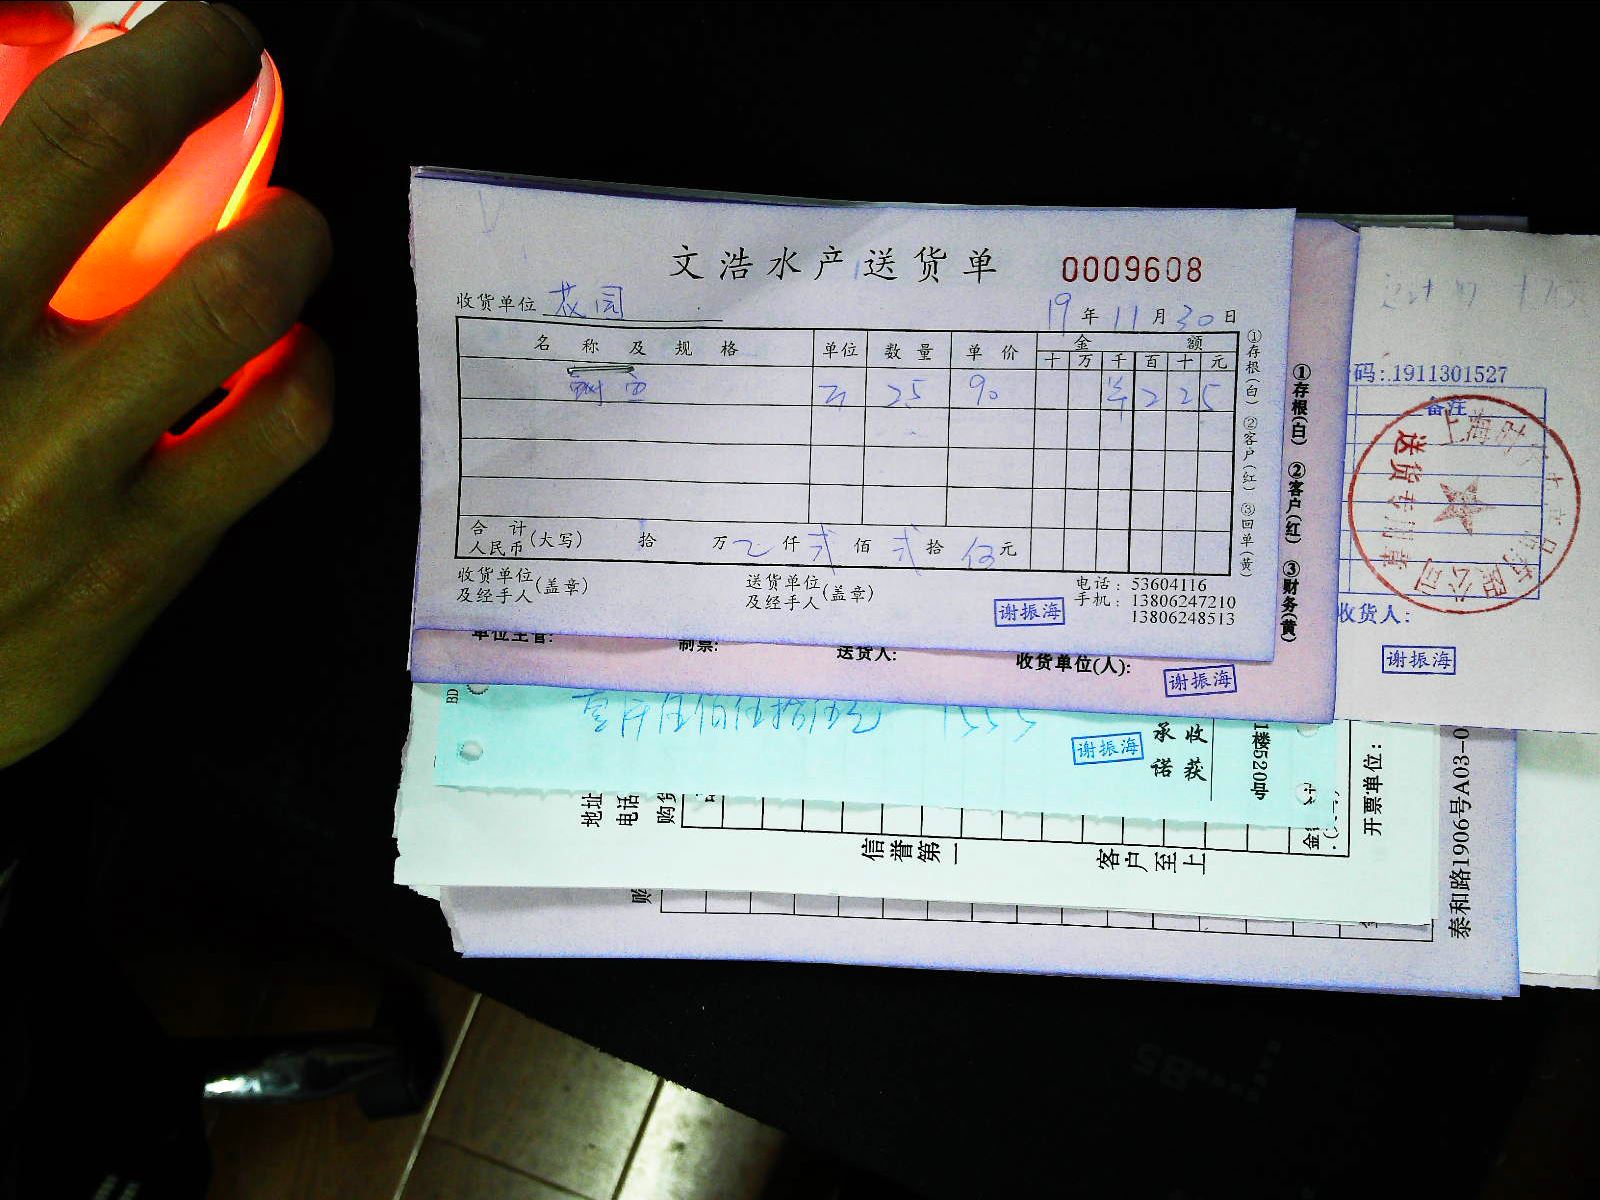 文浩水产送货单 0009608
收货单位 花园 19年11月30日
名称及规格 单位 数量 单价 金额
十 万 千 百 十 元
25 90 2 2 5
合计人民币(大写) 拾 万 仟 弍 佰 弍 拾 伍 元
收货单位及经手人(盖章) 送货单位及经手人(盖章) 电话:53604116
手机:13806247210
13806248513
谢振海
①存根(白) ②客户(红) ③回单(黄)
①存根(白) ②客户(红) ③财务(黄)
单位主管: 制票: 送货人: 收货单位(人):
谢振海
码:1911301527
备注
送货专用章
收货人:
谢振海
壹仟伍佰伍拾伍元 1555
谢振海
承诺 收获
1楼520号
BD
地址
电话
购货
开票单位:
信誉第一 客户至上
泰和路1906号A03-0
购